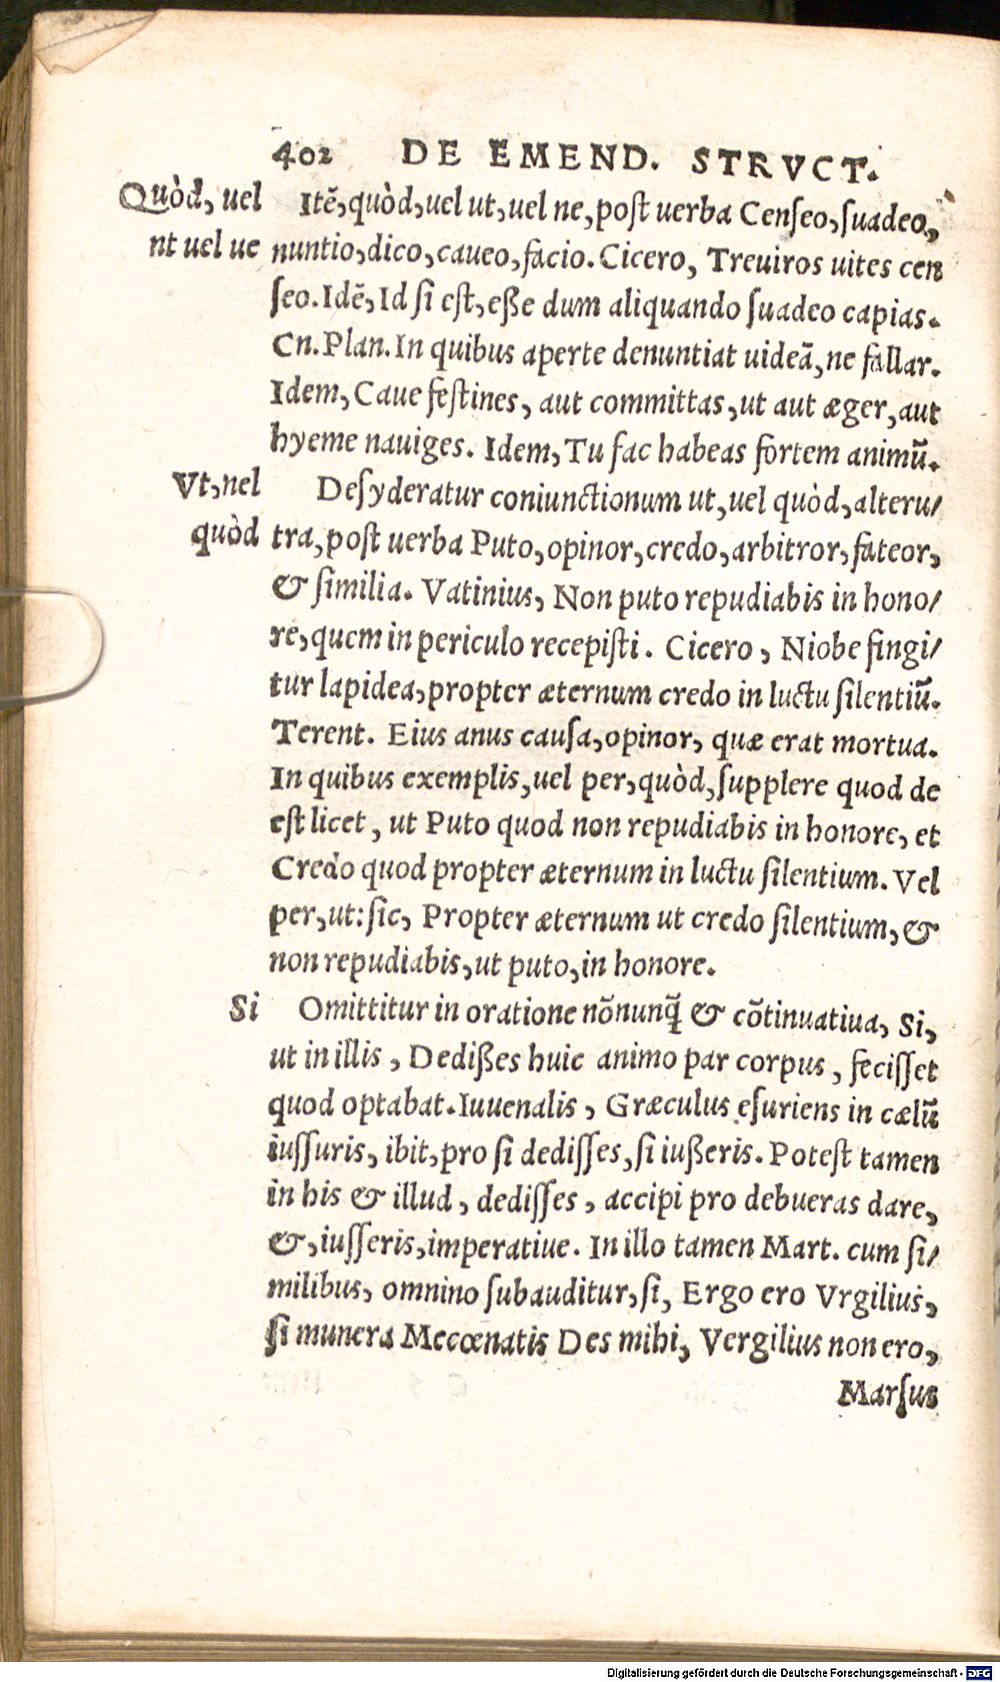 402 DE EMEND. STRVCT.
Quòd, uel
nt uel ue
Itẽ, quòd, uel ut, uel ne, poſt uerba Cenſeo, ſuadeo,
nuntio, dico, caueo, facio. Cicero, Treuiros uites cen
ſeo. Idẽ, Id ſi eſt, eße dum aliquando ſuadeo capias.
Cn. Plan. In quibus aperte denuntiat uideã, ne fallar.
Idem, Caue feſtines, aut committas, ut aut æger, aut
hyeme nauiges. Idem, Tu fac habeas fortem animũ.
Vt, nel
quòd
Deſyderatur coniunctionum ut, uel quòd, alteru/
tra, poſt uerba Puto, opinor, credo, arbitror, fateor,
& ſimilia. Vatinius, Non puto repudiabis in hono/
re, quem in periculo recepiſti. Cicero, Niobe fingi/
tur lapidea, propter æternum credo in luctu ſilentiũ.
Terent. Eius anus cauſa, opinor, quæ erat mortua.
In quibus exemplis, uel per, quòd, ſupplere quod de
eſt licet, ut Puto quod non repudiabis in honore, et
Credo quod propter æternum in luctu ſilentium. Vel
per, ut: ſic, Propter æternum ut credo ſilentium, &
non repudiabis, ut puto, in honore.
Si
Omittitur in oratione nõnunq̃ & cõtinuatiua, Si,
ut in illis, Dedißes huic animo par corpus, feciſſet
quod optabat. Iuuenalis, Græculus eſuriens in cælũ
iuſſuris, ibit, pro ſi dediſſes, ſi iußeris. Poteſt tamen
in his & illud, dediſſes, accipi pro debueras dare,
&, iuſſeris, imperatiue. In illo tamen Mart. cum ſi/
milibus, omnino ſubauditur, ſi, Ergo ero Vrgilius,
ſi munera Mecœnatis Des mihi, Vergilius non ero,
Marſus
Digitalisierung gefördert durch die Deutsche Forschungsgemeinschaft - DFG